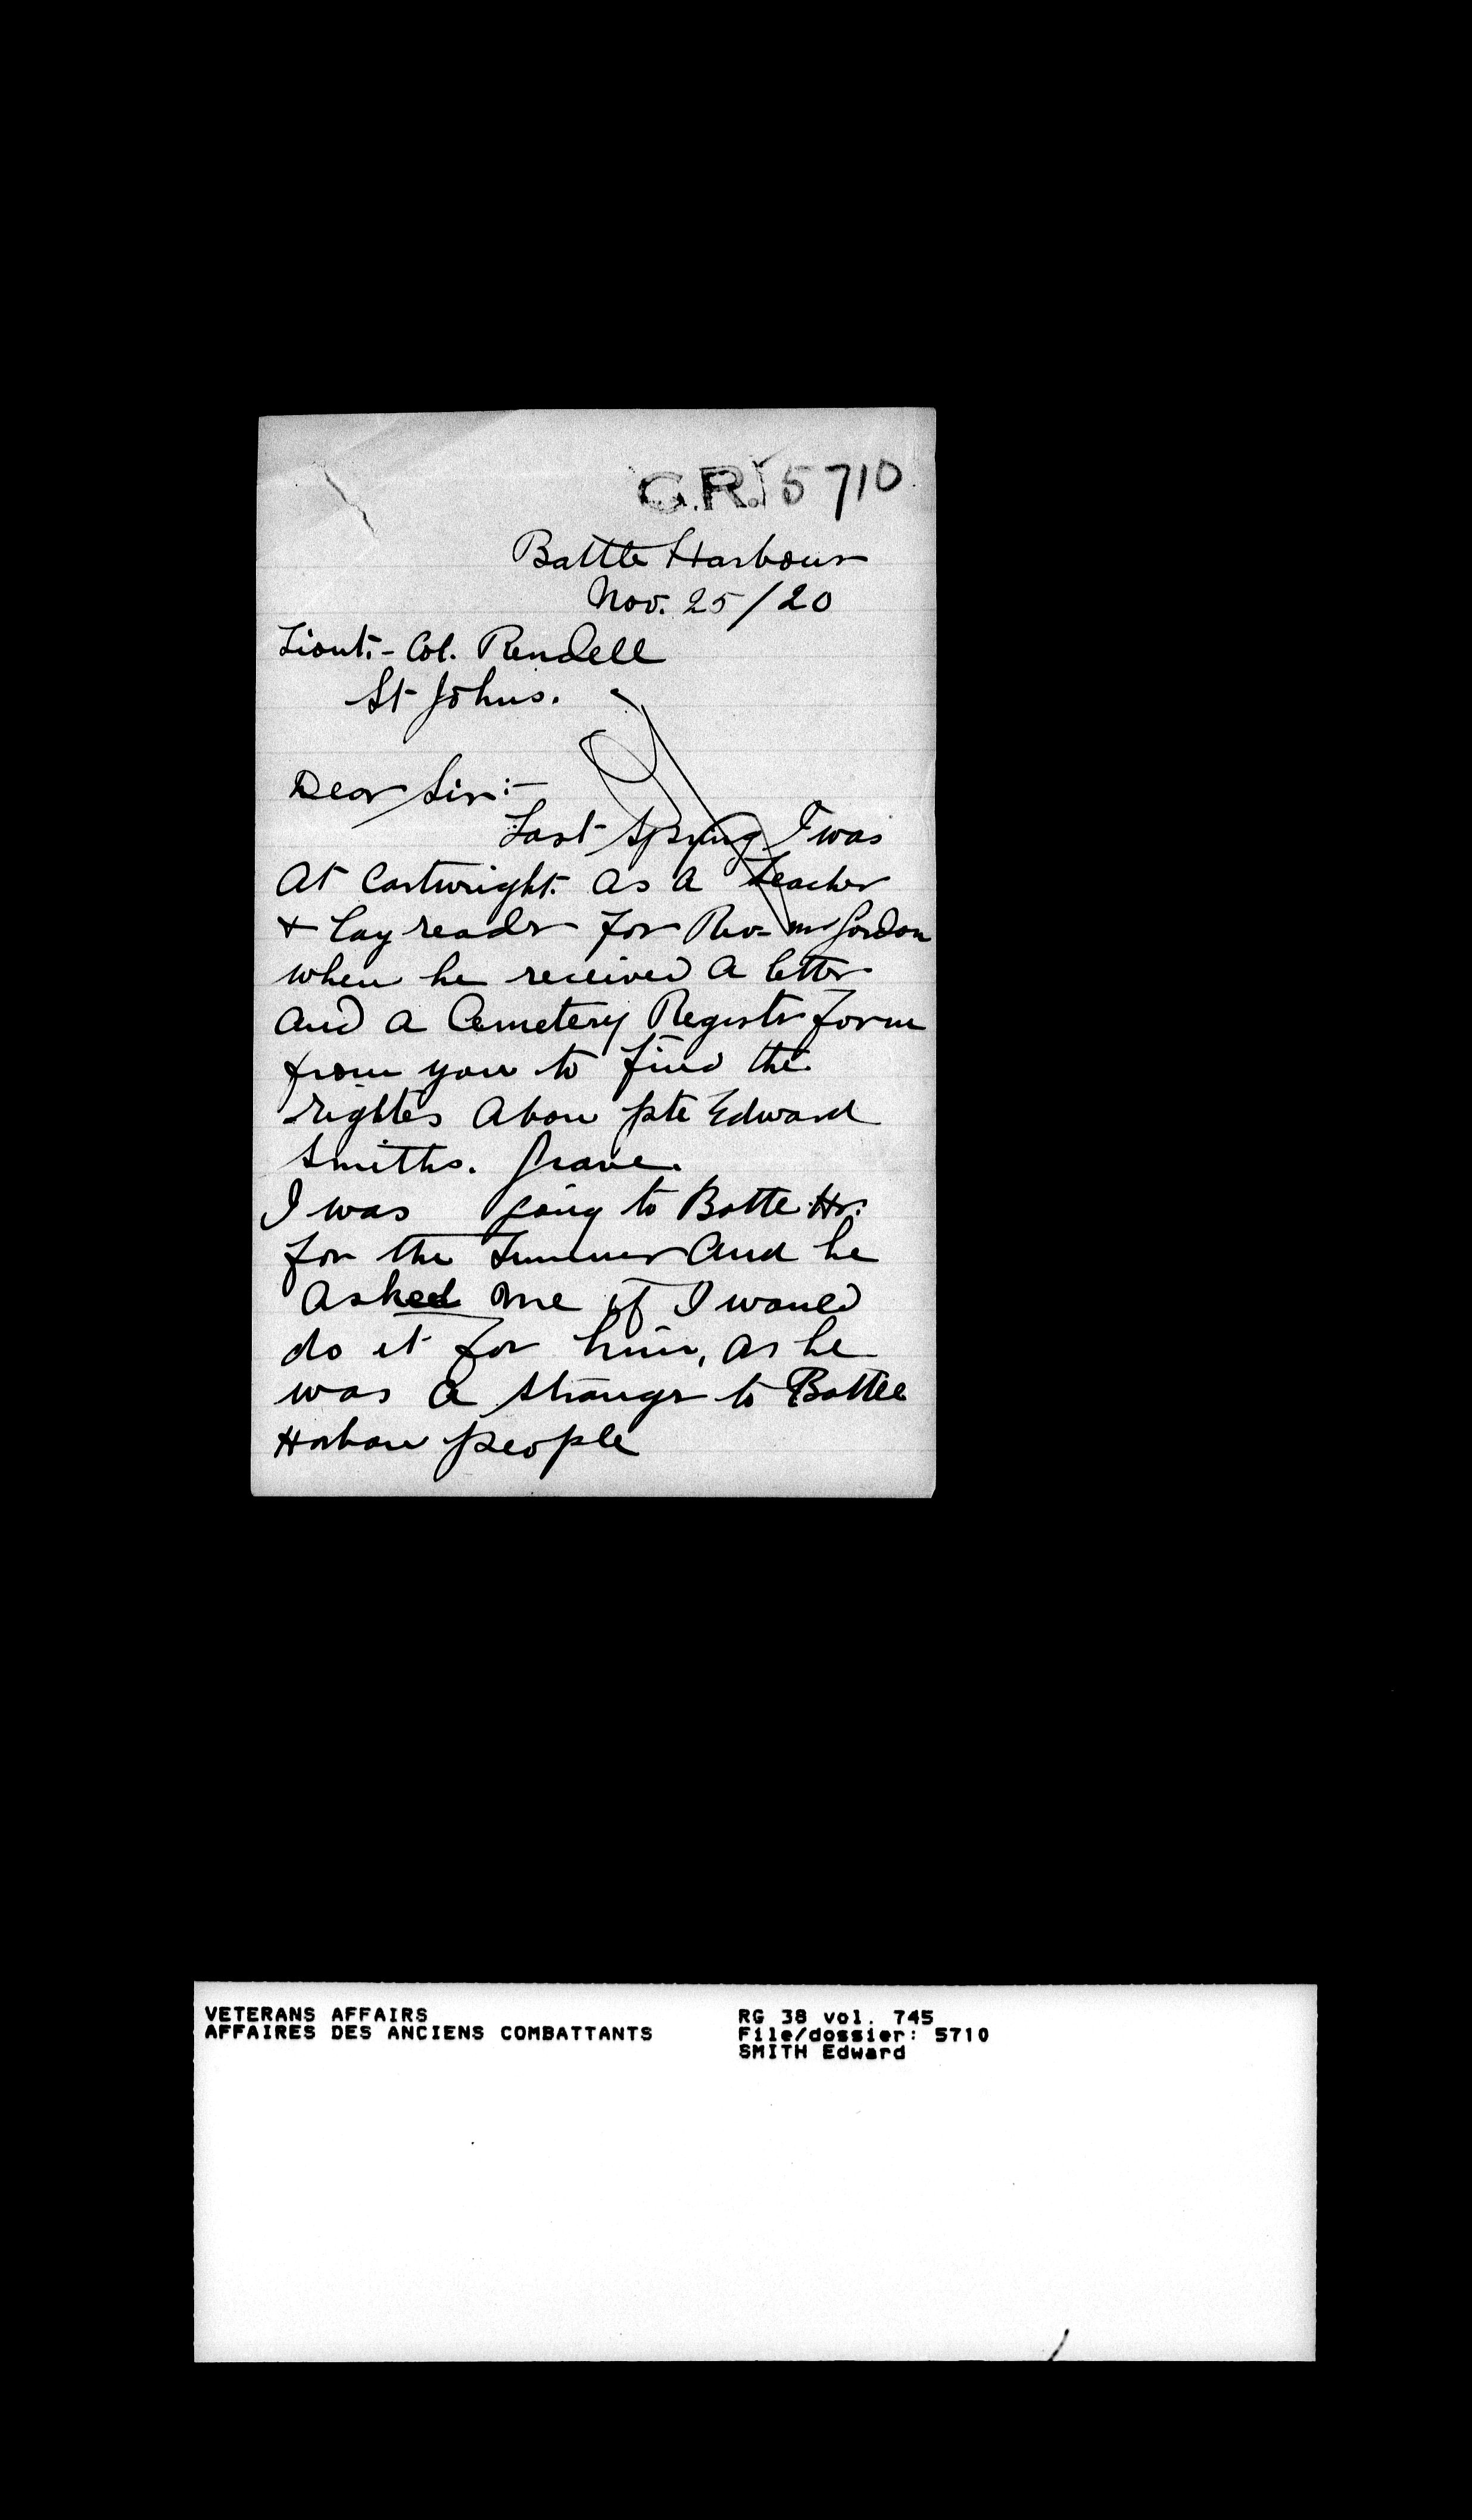 G.R. 5710
Battle Harbour
Nov. 25/20
Lieut.- Col. Rendell
St Johns.
Dear Sir:-
Last Spring I was
At Cartwright. as a teacher
& lay reader for Rev- Mr Gordon
when he received a letter
and a Cemetery Registr form
from you to find the
rightes abou pte Edward
Smiths. Grave.
I was going to Battle Hr.
for the Summer and he
asked me if I would
do it for him, as he
was a stranger to Battle
Harbour people
VETERANS AFFAIRS
AFFAIRES DES ANCIENS COMBATTANTS
RG 38 vol. 745
File/dossier: 5710
SMITH Edward